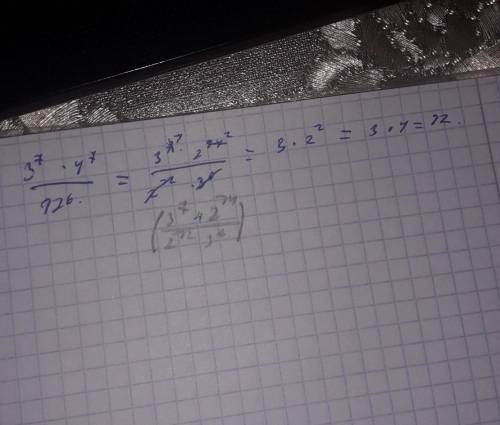 3^7 · 4^7 / 12^6 = 3^7 · 2^14 / 2^12 · 3^6 = 3 · 2^2 = 3 · 4 = 12.
(3^7 · 2^14 / 2^12 · 3^6)